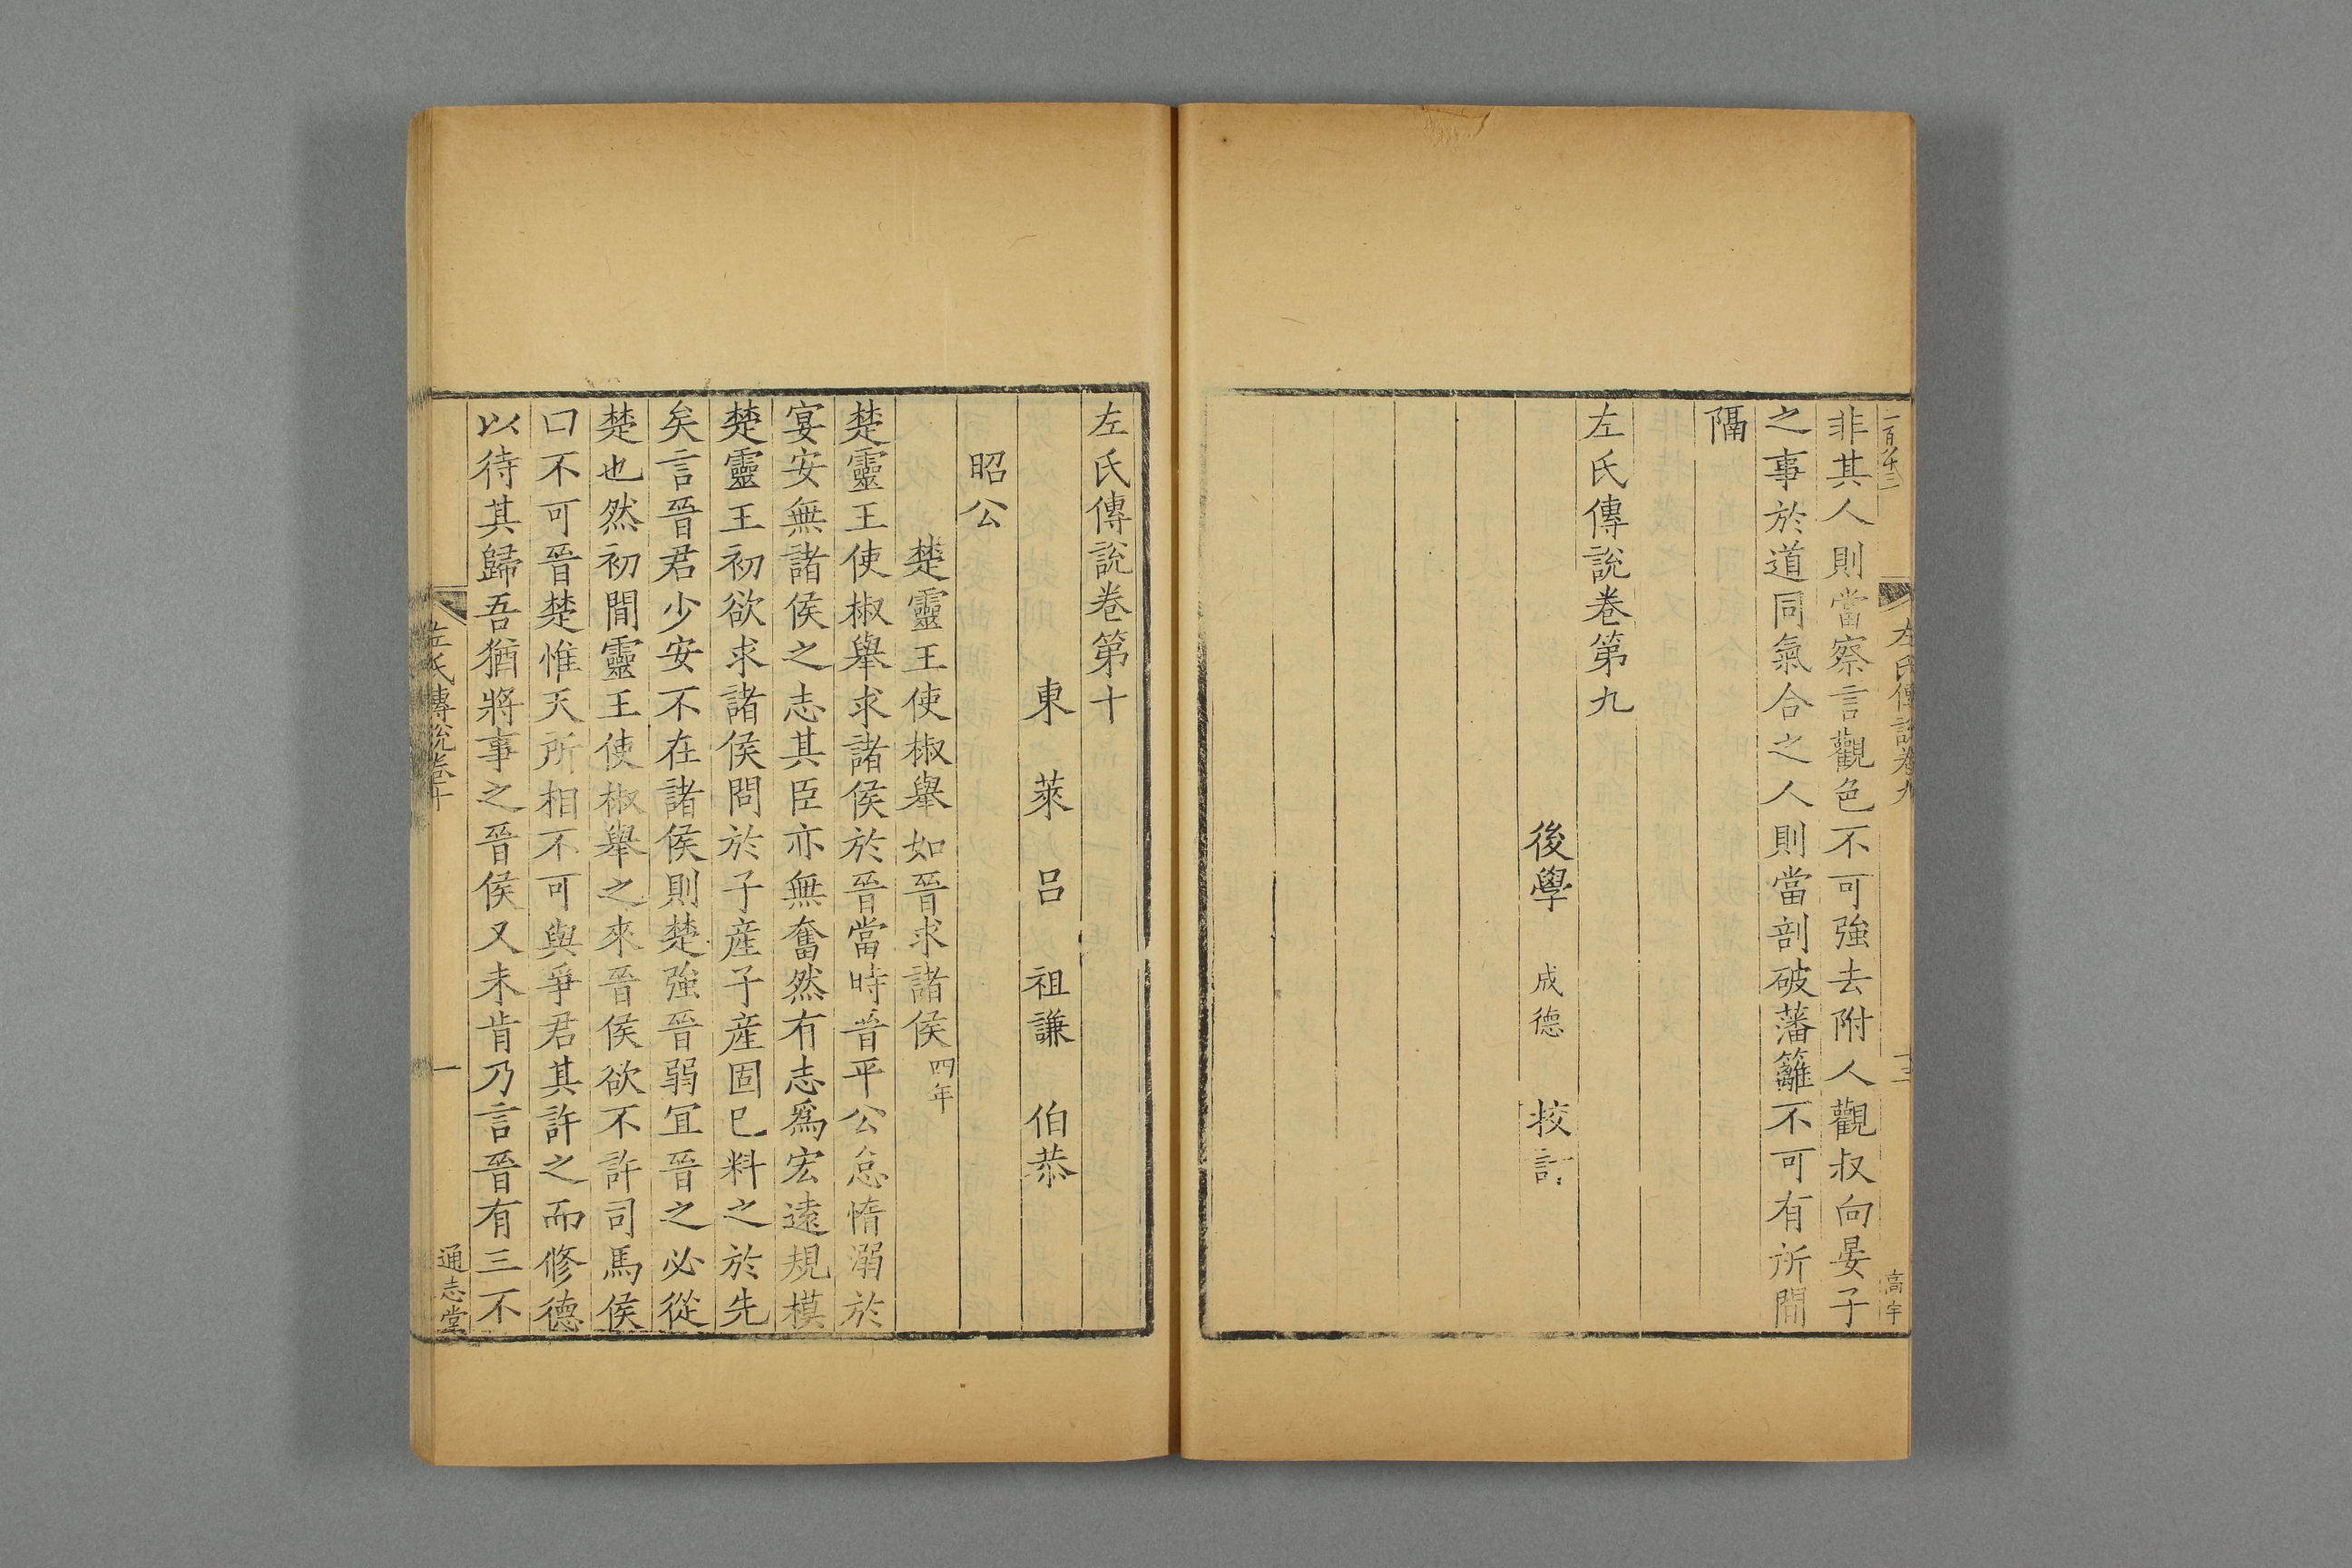 左氏傳說卷九
十三
高宇
非其人則當察言觀色不可強去附人觀叔向晏子
之事於道同氣合之人則當剖破藩籬不可有所間
隔
左氏傳說卷第九
後學 成德 挍訂
左氏傳說卷第十
東萊呂祖謙伯恭
昭公
楚靈王使椒舉如晉求諸侯四年
楚靈王使椒舉求諸侯於晉當時晉平公怠惰溺於
宴安無諸侯之志其臣亦無奮然有志爲宏遠規模
楚靈王初欲求諸侯問於子產子產固已料之於先
矣言晉君少安不在諸侯則楚強晉弱宜晉之必從
楚也然初間靈王使椒舉之來晉侯欲不許司馬侯
曰不可晉楚惟天所相不可與爭君其許之而修德
以待其歸吾猶將事之晉侯又未肯乃言晉有三不
左氏傳說卷十
一
通志堂